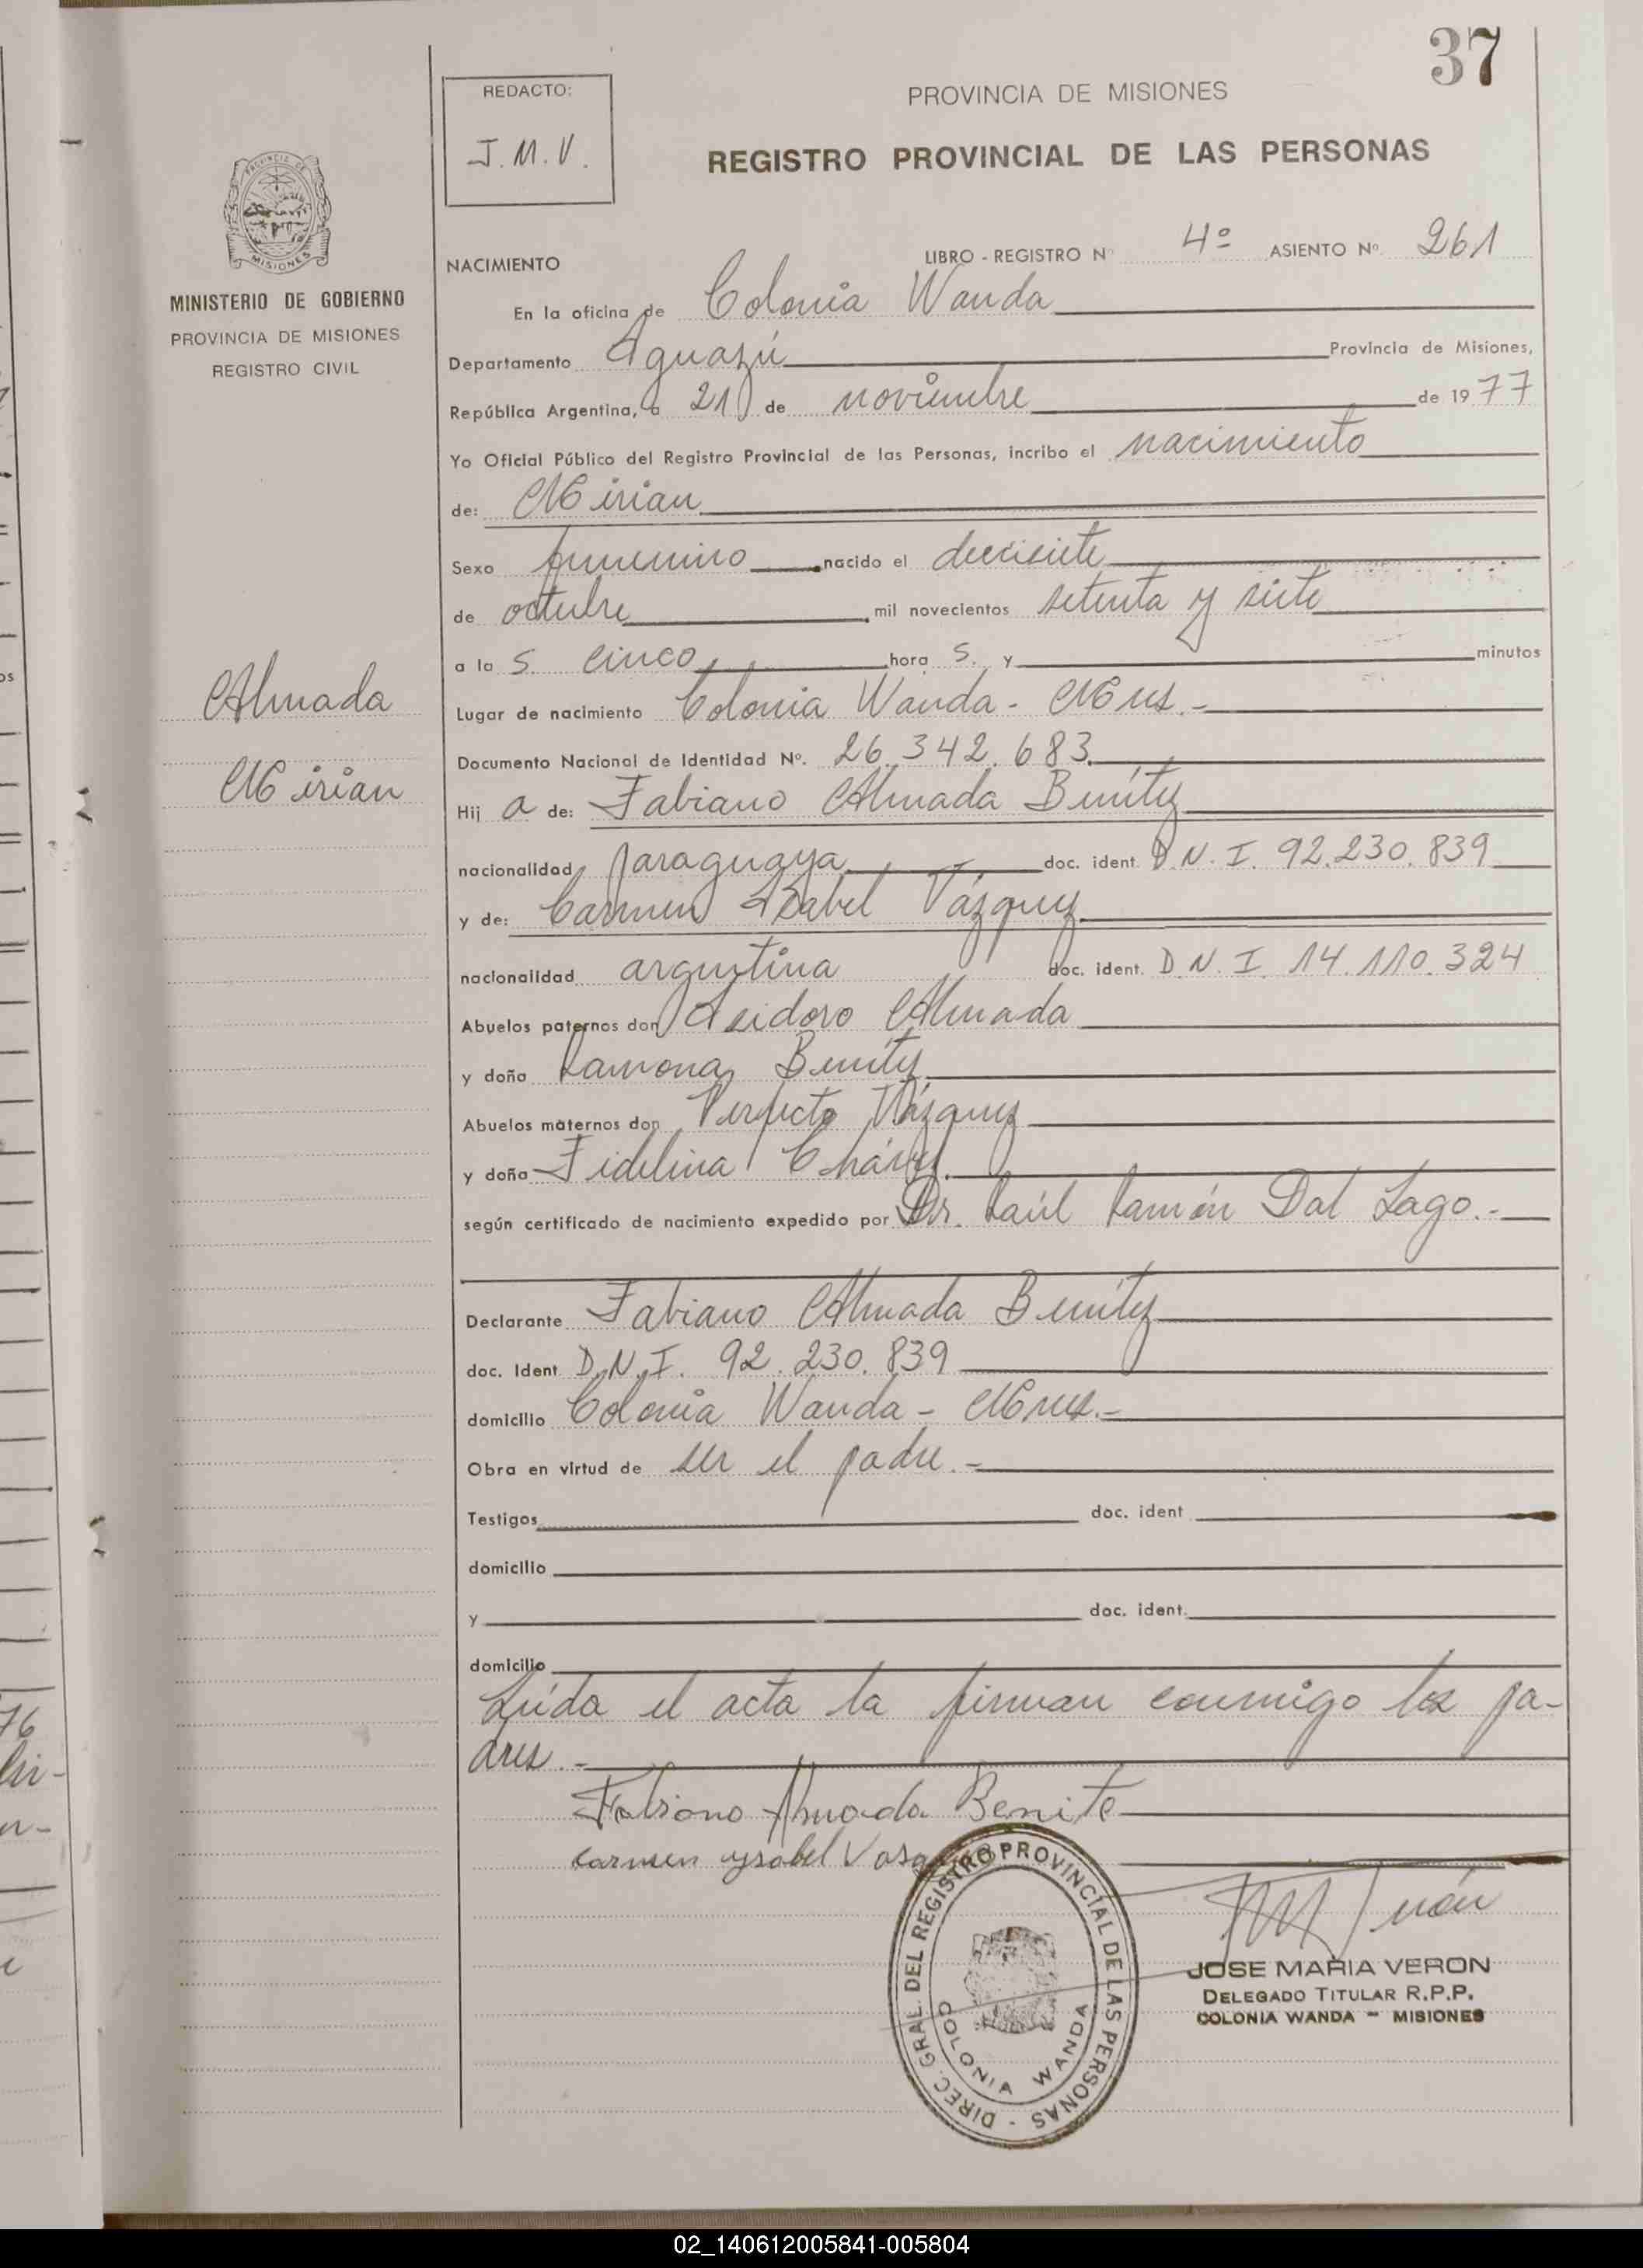 37
REDACTO:
J. M. V.
PROVINCIA DE MISIONES
REGISTRO PROVINCIAL DE LAS PERSONAS
PROVINCIA DE
MISIONES
MINISTERIO DE GOBIERNO
PROVINCIA DE MISIONES
REGISTRO CIVIL
NACIMIENTO LIBRO - REGISTRO Nº 4º ASIENTO Nº 261
En la oficina de Colonia Wanda
Departamento Iguazú Provincia de Misiones,
República Argentina, a 21 de noviembre de 1977
Yo Oficial Público del Registro Provincial de las Personas, incribo el nacimiento
de: Mirian
Sexo femenino nacido el diecisiete
de octubre mil novecientos setenta y siete
a la s. cinco hora s. y minutos
Almada
Mirian
Lugar de nacimiento Colonia Wanda - Mnes.-
Documento Nacional de Identidad Nº. 26.342.683
Hij a de: Fabiano Almada Benítez
nacionalidad paraguaya doc. ident. D.N.I. 92.230.839
y de: Carmen Isabel Vázquez
nacionalidad argentina doc. ident. D.N.I. 14.110.324
Abuelos paternos don Isidoro Almada
y doña Ramona Benítez
Abuelos maternos don Perfecto Vázquez
y doña Fidelina Chávez
según certificado de nacimiento expedido por Dr. Raúl Ramón Dal Lago.-
Declarante Fabiano Almada Benítez
doc. Ident D.N.I. 92.230.839
domicilio Colonia Wanda - Mnes.-
Obra en virtud de ser el padre.-
Testigos doc. ident
domicilio
y doc. ident.
domicilio
Leída el acta la firman conmigo los pa-
dres.-
Fabiano Almada Benite
carmen ysabel
DIREC. GRAL. DEL REGISTRO PROVINCIAL DE LAS PERSONAS -
COLONIA WANDA
JOSE MARIA VERON
DELEGADO TITULAR R.P.P.
COLONIA WANDA - MISIONES
02_140612005841-005804